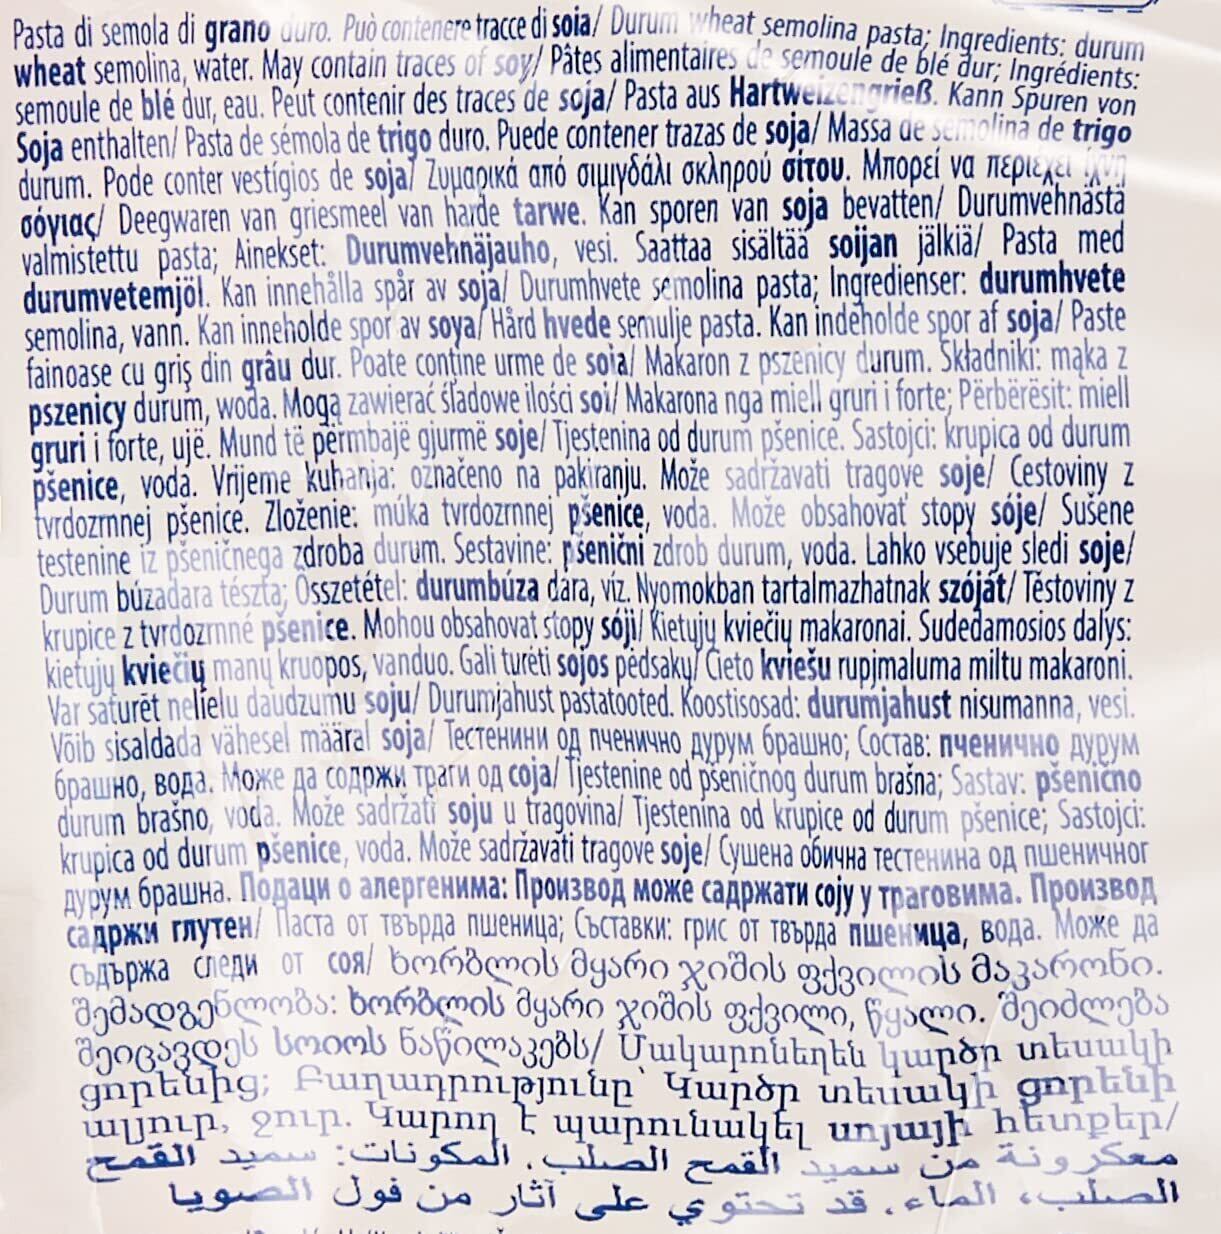 Pasta di semola di grano duro. Può contenere tracce di soia/ Durum wheat semolina pasta; Ingredients: durum
wheat semolina, water. May contain traces of soy/ Pâtes alimentaires de semoule de blé dur; Ingrédients:
semoule de blé dur, eau. Peut contenir des traces de soja/ Pasta aus Hartweizengrieß. Kann Spuren von
Soja enthalten/ Pasta de sémola de trigo duro. Puede contener trazas de soja/ Massa de semolina de trigo
durum. Pode conter vestígios de soja/ Ζυμαρικά από σιμιγδάλι σκληρού σίτου. Μπορεί να περιέχει ίχνη
σόγιας/ Deegwaren van griesmeel van harde tarwe. Kan sporen van soja bevatten/ Durumvehnästä
valmistettu pasta; Ainekset: Durumvehnäjauho, vesi. Saattaa sisältää soijan jälkiä/ Pasta med
durumvetemjöl. Kan innehålla spår av soja/ Durumhvete semolina pasta; Ingredienser: durumhvete
semolina, vann. Kan inneholde spor av soya/ Hård hvede semulje pasta. Kan indeholde spor af soja/ Paste
fainoase cu griş din grâu dur. Poate conţine urme de soia/ Makaron z pszenicy durum. Składniki: mąka z
pszenicy durum, woda. Mogą zawierać śladowe ilości soi/ Makarona nga miell gruri i forte; Përbërësit: miell
gruri i forte, ujë. Mund të përmbajë gjurmë soje/ Tjestenina od durum pšenice. Sastojci: krupica od durum
pšenice, voda. Vrijeme kuhanja: označeno na pakiranju. Može sadržavati tragove soje/ Cestoviny z
tvrdozrnnej pšenice. Zloženie: múka tvrdozrnnej pšenice, voda. Može obsahovať stopy sóje/ Sušene
testenine iz pšeničnega zdroba durum. Sestavine: pšenični zdrob durum, voda. Lahko vsebuje sledi soje/
Durum búzadara tészta; Összetétel: durumbúza dara, víz. Nyomokban tartalmazhatnak szóját/ Těstoviny z
krupice z tvrdozrnné pšenice. Mohou obsahovat stopy sóji/ Kietųjų kviečių makaronai. Sudedamosios dalys:
kietųjų kviečių manų kruopos, vanduo. Gali turėti sojos pėdsakų/ Cieto kviešu rupjmaluma miltu makaroni.
Var saturēt nelielu daudzumu soju/ Durumjahust pastatooted. Koostisosad: durumjahust nisumanna, vesi.
Võib sisaldada vähesel määral soja/ Тестенини од пченично дурум брашно; Состав: пченично дурум
брашно, вода. Може да содржи траги од соја/ Tjestenine od pšeničnog durum brašna; Sastav: pšenično
durum brašno, voda. Može sadržati soju u tragovina/ Tjestenina od krupice od durum pšenice; Sastojci:
krupica od durum pšenice, voda. Može sadržavati tragove soje/ Сушена обична тестенина од пшеничног
дурум брашна. Подаци о алергенима: Производ може садржати соју у траговима. Производ
садржи глутен/ Паста от твърда пшеница; Съставки: грис от твърда пшеница, вода. Може да
съдържа следи от соя/ ხორბლის მყარი ჯიშის ფქვილის მაკარონი.
შემადგენლობა: ხორბლის მყარი ჯიშის ფქვილი, წყალი. შეიძლება
შეიცავდეს სოიოს ნაწილაკებს/ Մակարոնեղեն կարծր տեսակի
ցորենից; Բաղադրությունը՝ Կարծր տեսակի ցորենի
ալյուր, ջուր. Կարող է պարունակել սոյայի հետքեր/
معكرونة من سميد القمح الصلب. المكونات: سميد القمح
الصلب، الماء. قد تحتوي على آثار من فول الصويا